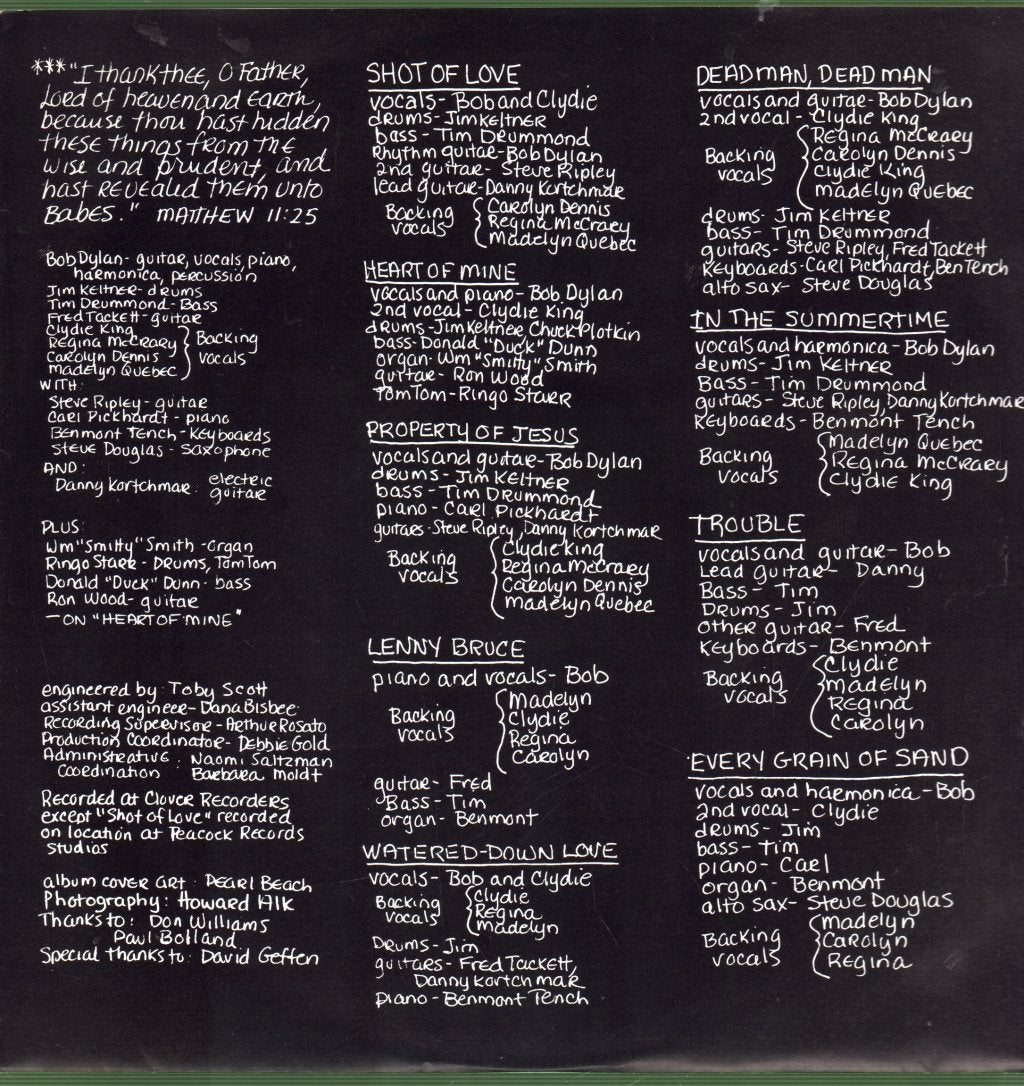 ***"I thank thee, O Father,
Lord of heaven and Earth,
because thou hast hidden
these things from the
wise and prudent, and
hast REVEALED them unto
Babes." MATTHEW 11:25
Bob Dylan - guitar, vocals, piano,
harmonica, percussion
Jim Keltner - drums
Tim Drummond - Bass
Fred Tackett - guitar
Clydie King
Regina McCrary
Carolyn Dennis
Madelyn Quebec
Backing
vocals
WITH:
Steve Ripley - guitar
Carl Pickhardt - piano
Benmont Tench - Keyboards
Steve Douglas - Saxophone
AND:
Danny Kortchmar: electric
guitar
PLUS:
Wm "Smitty" Smith - Organ
Ringo Starr - Drums, TomTom
Donald "Duck" Dunn - bass
Ron Wood - guitar
— ON "HEART OF MINE"
engineered by: Toby Scott
assistant engineer - Dana Bisbee
Recording Supervisor - Arthur Rosato
Production Coordinator - Debbie Gold
Administrative : Naomi Saltzman
Coordination Barbara Moldt
Recorded at Clover Recorders
except "Shot of Love" recorded
on location at Peacock Records
studios
album cover art: Pearl Beach
Photography: Howard Alk
Thanks to: Don Williams
Paul Bolland
Special thanks to: David Geffen
SHOT OF LOVE
vocals - Bob and Clydie
drums - Jim Keltner
bass - Tim Drummond
Rhythm guitar - Bob Dylan
2nd guitar - Steve Ripley
lead guitar - Danny Kortchmar
Backing
vocals
Carolyn Dennis
Regina McCrary
Madelyn Quebec
HEART OF MINE
vocals and piano - Bob Dylan
2nd vocal - Clydie King
drums - Jim Keltner, Chuck Plotkin
bass - Donald "Duck" Dunn
organ - Wm "Smitty" Smith
guitar - Ron Wood
Tom Tom - Ringo Starr
PROPERTY OF JESUS
vocals and guitar - Bob Dylan
drums - Jim Keltner
bass - Tim Drummond
piano - Carl Pickhardt
guitars - Steve Ripley, Danny Kortchmar
Backing
vocals
Clydie King
Regina McCrary
Carolyn Dennis
Madelyn Quebec
LENNY BRUCE
piano and vocals - Bob
Backing
vocals
Madelyn
Clydie
Regina
Carolyn
guitar - Fred
Bass - Tim
organ - Benmont
WATERED-DOWN LOVE
vocals - Bob and Clydie
Backing
vocals
Clydie
Regina
Madelyn
Drums - Jim
guitars - Fred Tackett,
Danny Kortchmar
piano - Benmont Tench
DEAD MAN, DEAD MAN
vocals and guitar - Bob Dylan
2nd vocal - Clydie King
Backing
vocals
Regina McCrary
Carolyn Dennis
Clydie King
Madelyn Quebec
drums - Jim Keltner
bass - Tim Drummond
guitars - Steve Ripley, Fred Tackett
Keyboards - Carl Pickhardt, Ben Tench
alto sax - Steve Douglas
IN THE SUMMERTIME
vocals and harmonica - Bob Dylan
drums - Jim Keltner
Bass - Tim Drummond
guitars - Steve Ripley, Danny Kortchmar
Keyboards - Benmont Tench
Backing
vocals
Madelyn Quebec
Regina McCrary
Clydie King
TROUBLE
vocals and guitar - Bob
Lead guitar - Danny
Bass - Tim
Drums - Jim
other guitar - Fred
Keyboards - Benmont
Backing
vocals
Clydie
Madelyn
Regina
Carolyn
EVERY GRAIN OF SAND
vocals and harmonica - Bob
2nd vocal - Clydie
drums - Jim
bass - Tim
piano - Carl
organ - Benmont
alto sax - Steve Douglas
Backing
vocals
Madelyn
Carolyn
Regina